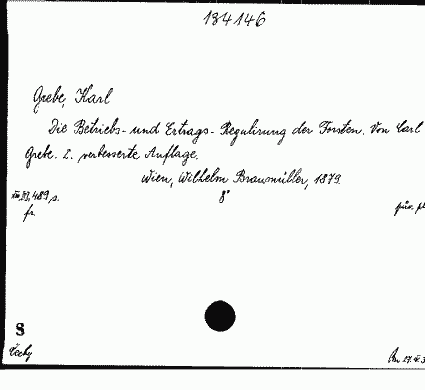 184146
Grebe, Karl
Die Betriebs- und Ertrags- Regulirung der Forsten. Von Carl
Grebe. 2. verbesserte Auflage.
Wien, Wilhelm Braumüller, 1879.
489 s. 8°
fr.
S